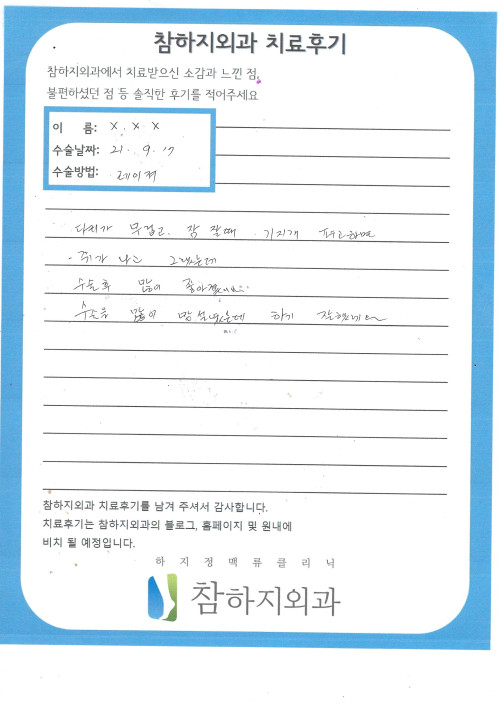 참하지외과 치료후기
참하지외과에서 치료받으신 소감과 느낀 점,
불편하셨던 점 등 솔직한 후기를 적어주세요
이 름: X. X X
수술날짜: 21. 9. 17
수술방법: 레이저
다리가 무겁고. 잠 잘때 기지개
쥐가 나고 그랬는데
수술후 많이 좋아졌어요
수술을 많이 망설였는데 하기 잘했네요
참하지외과 치료후기를 남겨 주셔서 감사합니다.
치료후기는 참하지외과의 블로그, 홈페이지 및 원내에
비치 될 예정입니다.
하지정맥류클리닉
참하지외과